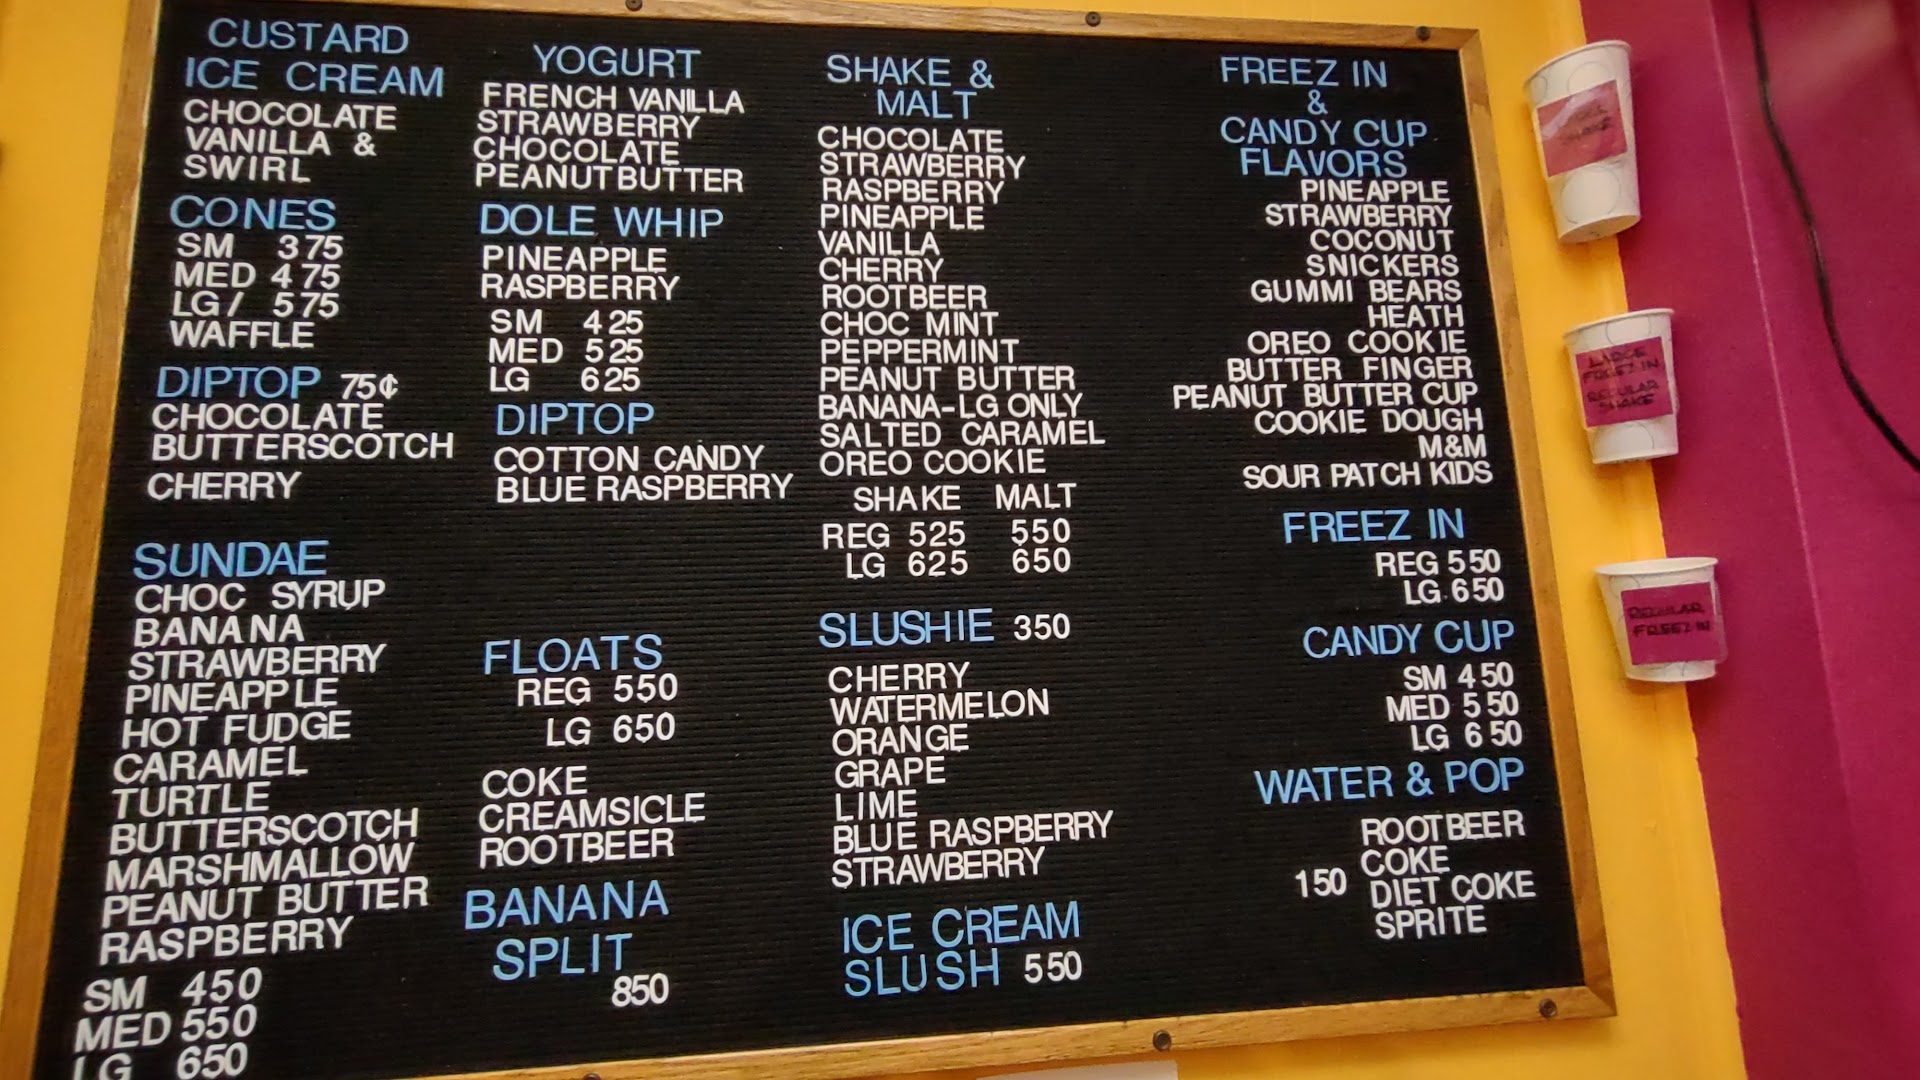 CUSTARD
ICE CREAM
CHOCOLATE
VANILLA &
SWIRL
CONES
SM 375
MED 475
LG/ 575
WAFFLE
DIPTOP 75¢
CHOCOLATE
BUTTERSCOTCH
CHERRY
SUNDAE
CHOC SYRUP
BANANA
STRAWBERRY
PINEAPPLE
HOT FUDGE
CARAMEL
TURTLE
BUTTERSCOTCH
MARSHMALLOW
PEANUT BUTTER
RASPBERRY
SM 450
MED 550
LG 650
YOGURT
FRENCH VANILLA
STRAWBERRY
CHOCOLATE
PEANUT BUTTER
DOLE WHIP
PINEAPPLE
RASPBERRY
SM 425
MED 525
LG 625
DIPTOP
COTTON CANDY
BLUE RASPBERRY
FLOATS
REG 550
LG 650
COKE
CREAMSICLE
ROOTBEER
BANANA
SPLIT
850
SHAKE &
MALT
CHOCOLATE
STRAWBERRY
RASPBERRY
PINEAPPLE
VANILLA
CHERRY
ROOTBEER
CHOC MINT
PEPPERMINT
PEANUT BUTTER
BANANA-LG ONLY
SALTED CARAMEL
OREO COOKIE
SHAKE MALT
REG 525 550
LG 625 650
SLUSHIE 350
CHERRY
WATERMELON
ORANGE
GRAPE
LIME
BLUE RASPBERRY
STRAWBERRY
ICE CREAM
SLUSH 550
FREEZ IN
&
CANDY CUP
FLAVORS
PINEAPPLE
STRAWBERRY
COCONUT
SNICKERS
GUMMI BEARS
HEATH
OREO COOKIE
BUTTER FINGER
PEANUT BUTTER CUP
COOKIE DOUGH
M&M
SOUR PATCH KIDS
FREEZ IN
REG 550
LG 650
CANDY CUP
SM 450
MED 550
LG 650
WATER & POP
ROOTBEER
COKE
150
DIET COKE
SPRITE
SHAKE
LARGE
FREEZ IN
REGULAR
SHAKE
REGULAR
FREEZ IN